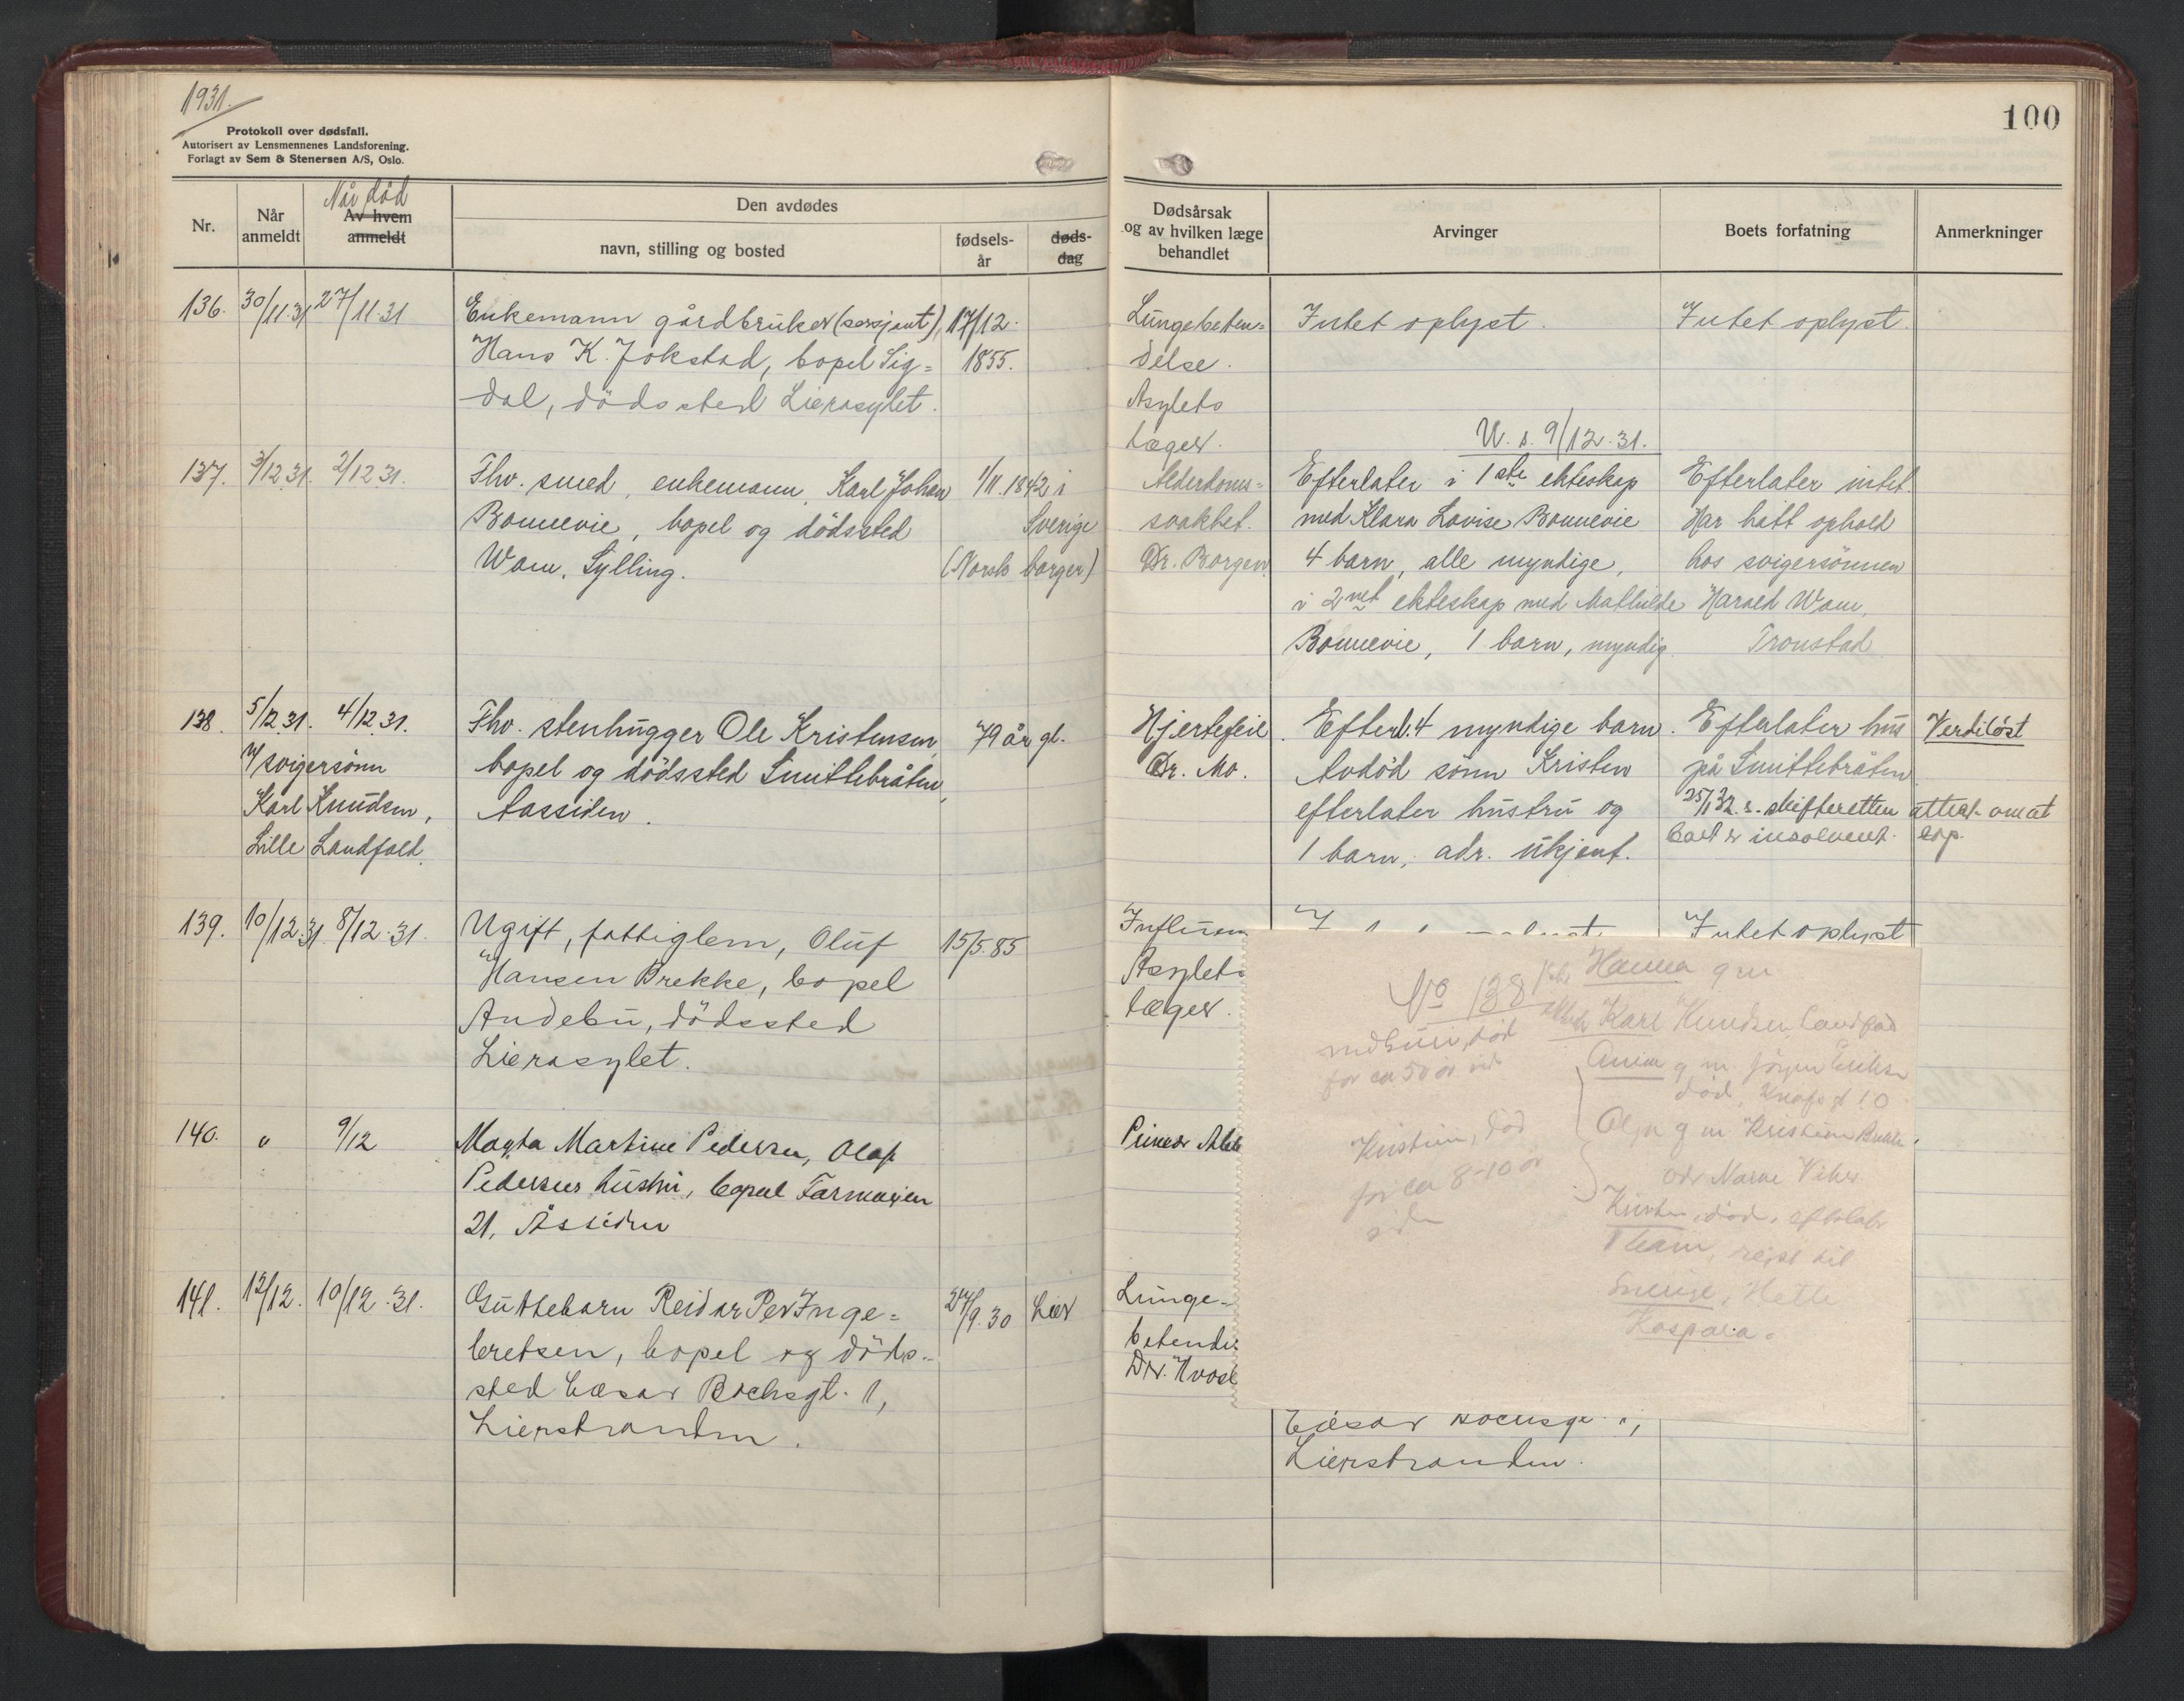 1931.
Protokoll over dødsfall.
Autorisert av Lensmennenes Landsforening.
Forlagt av Sem & Stenersen A/S, Oslo.
100
Nr.
Når anmeldt
Når död
Av hvem anmeldt
Den avdødes
navn, stilling og bosted
fødsels-
år
døds-
dag
Dødsårsak
og av hvilken læge
behandlet
Arvinger
Boets forfatning
Anmerkninger
136. 30/11.31 27/11.31
Enkemann gårdbruker (sersjant),
Hans K. Jokstad, bopel Sig=
dal, dödssted Lierasylet.
17/12.
1855.
Lungebeten=
delse.
Asylets
læger.
Intet oplyst.
Intet oplyst.
137. 3/12 31. 2/12 31.
Fhv. smed, enkemann, Karl Johan
Bonnevie, bopel og dödssted
Wam, Sylling.
1/11.1842 i
Sverige
(Norsk borger)
Alderdoms=
svakhet.
Dr. Borgen
U. s. 9/12.31.
Efterlater i 1ste ekteskap
med Klara Lovise Bonnevie
4 barn, alle myndige,
i 2net ekteskap med Mathilde
Bonnevie, 1 barn, myndig.
Efterlater intet.
Har hatt ophold
hos svigersönnen
Harald Wam,
Tronstad
138. 5/12 31. 4/12 31.
v/ svigersönn
Karl Knudsen,
Lille Landfald.
Fhv. stenhugger Ole Kristensen
bopel og dödssted Smittebråten,
Aassiden.
79 år gl.
Hjertefeil.
Dr. Mo.
Efterl. 4 myndige barn.
Avdöd sönn Kristen
efterlater hustru og
1 barn, adr. ukjent.
Efterlater hus
på Smittebråten
25/1 32. s. skifteretten attest om at
boet er insolvent.
Verdilöst
139. 10/12.31 8/12.31.
Ugift, fattiglem, Oluf
Hansen Brekke, bopel
Andebu, dödssted
Lierasylet.
15/5.85
Asylets
læger.
Intet oplyst
140. " 9/12
Magta Martine Pedersen, Olaf
Pedersens hustru, bopæl Farmaxien
21, Åssiden
141. 12/12. 10/12.31.
Guttebarn Reidar Per Inge=
bretsen, bopel og döds=
sted Cæsar Bochsgt. 1,
Lierstranden.
24/9.30
Lier
Lunge=
Dr.
Cæsar Bochsgt. 1,
Lierstranden.
No 138
död
for ca 50 år
Kristian, död
for ca 8-10 år
siden
Hanna g m
Karl Knudsen, Landfald
Anna g m. Jörgen
död,
Olga g m Kristian
död, efterlater
1 barn, reist til
Sverige, Hette
Kaspara.